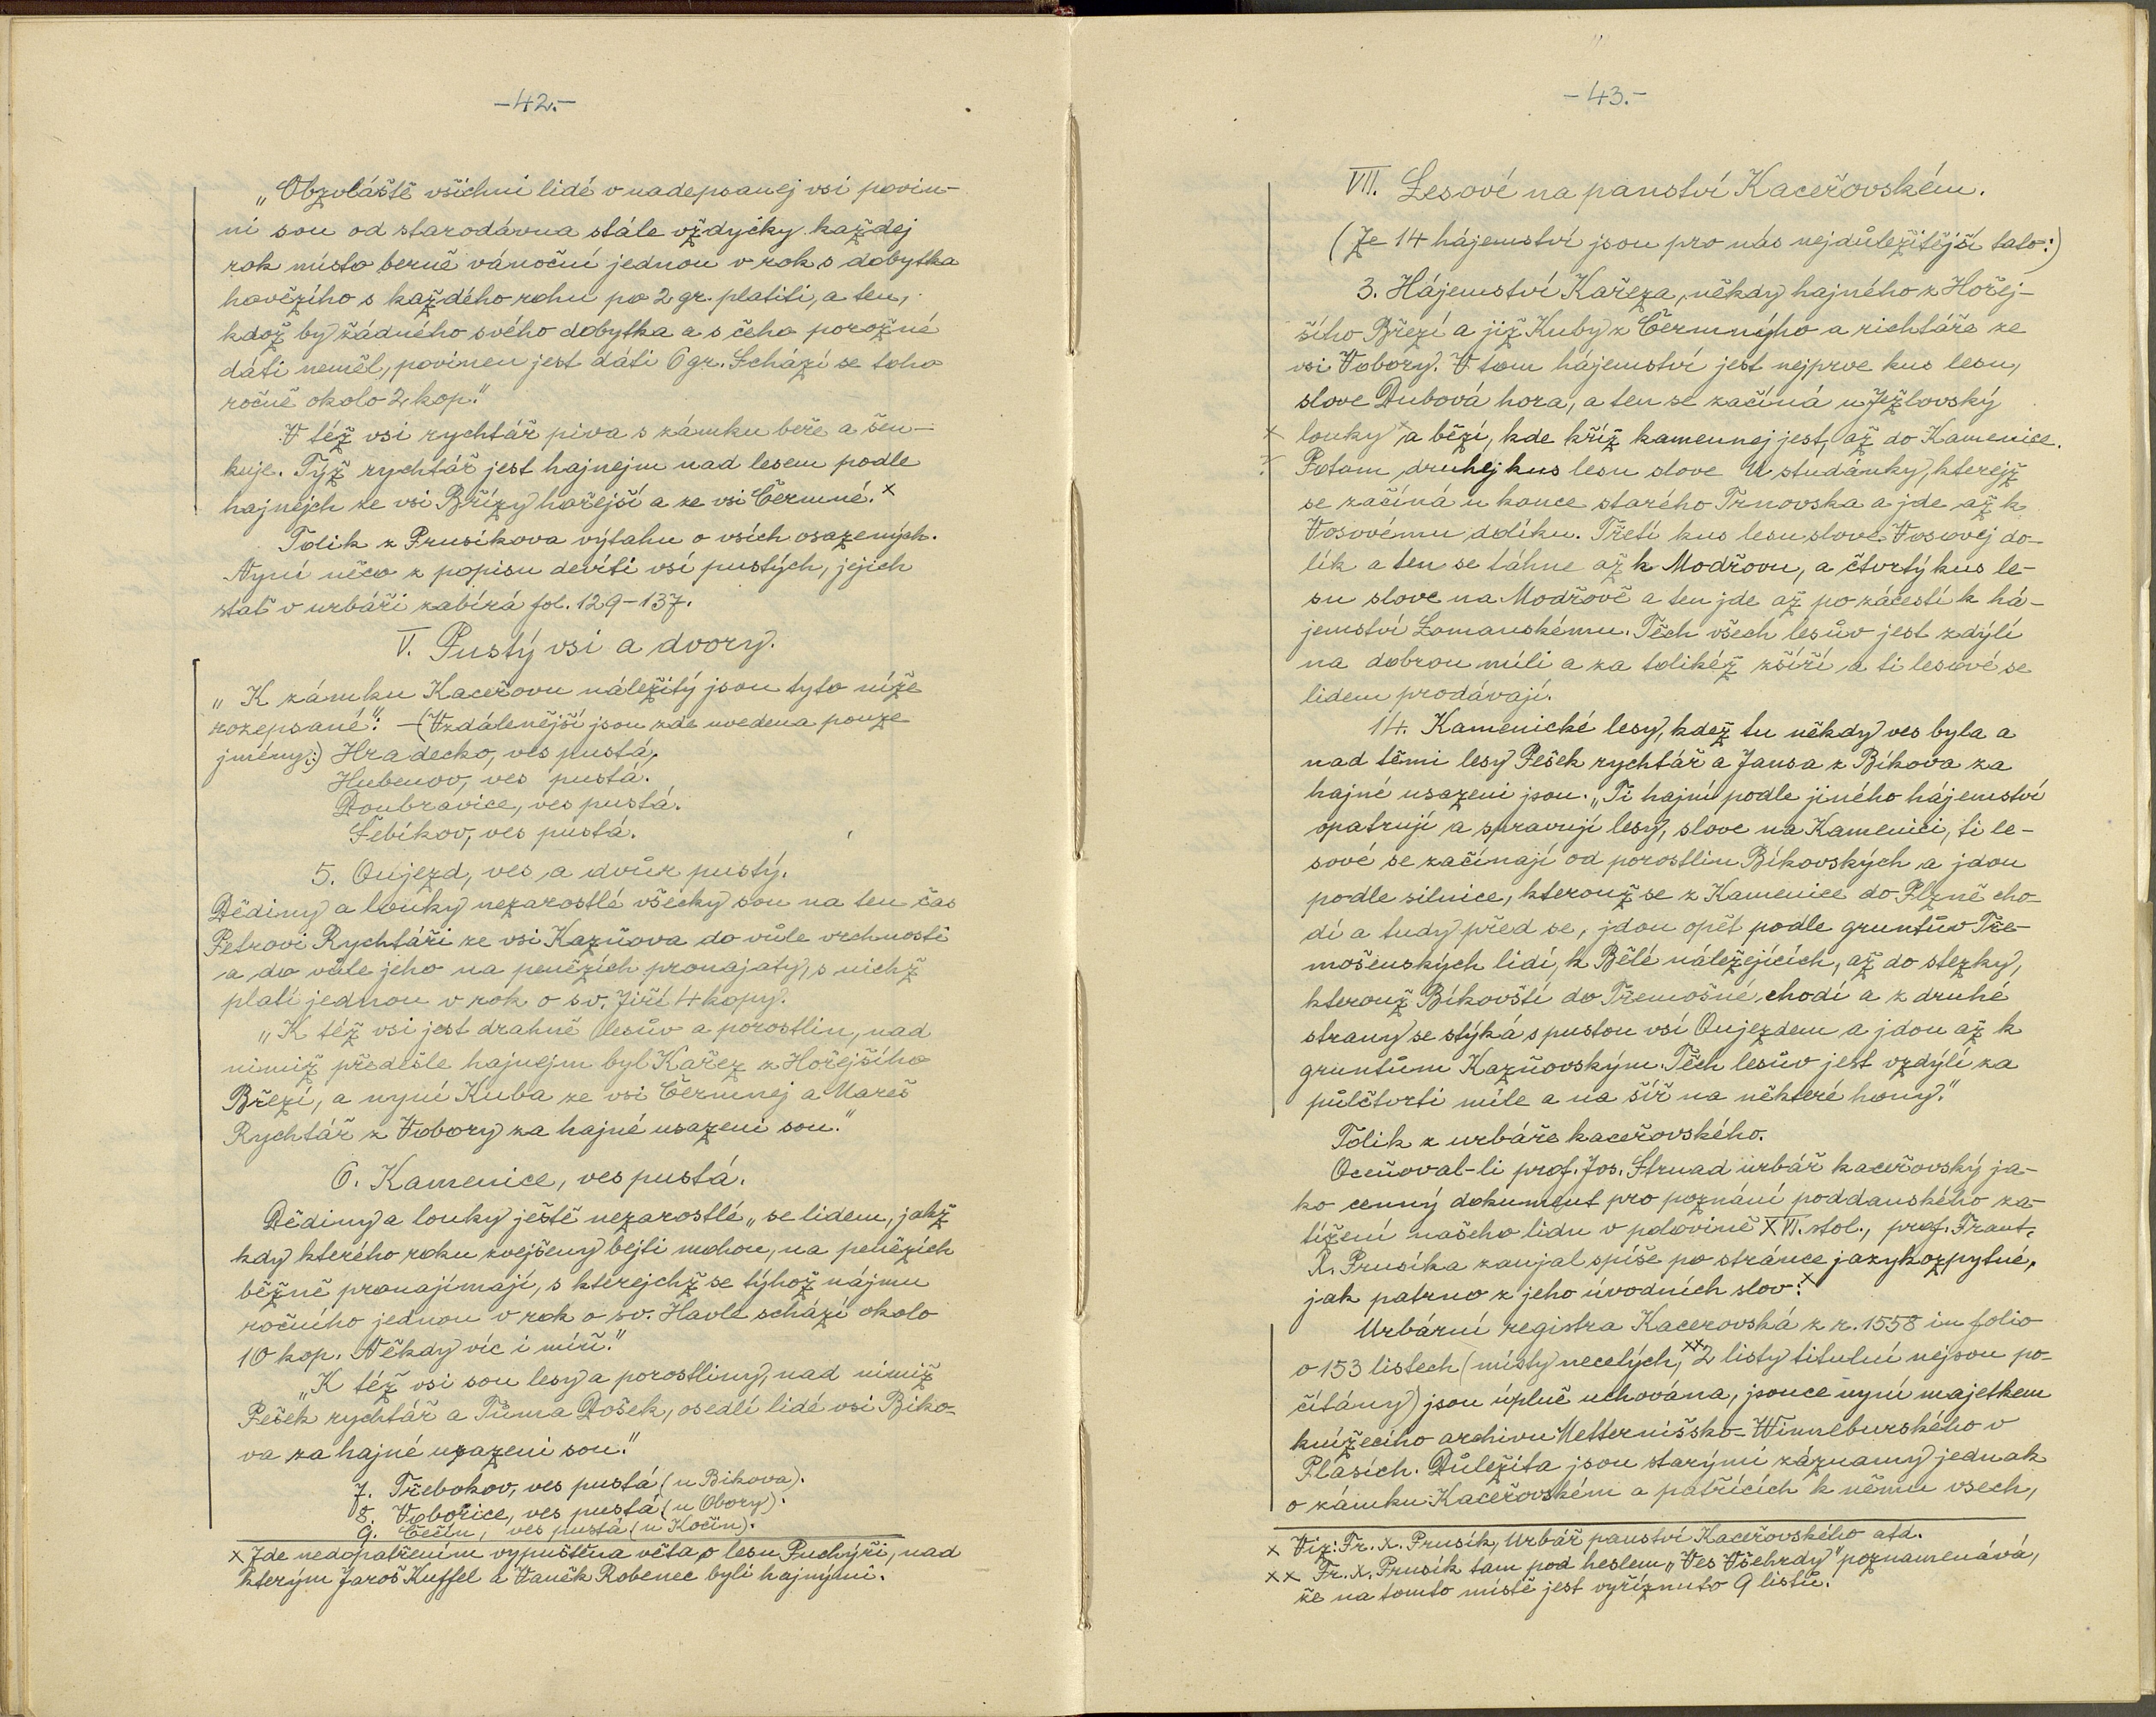 -42.-
„Obzvláště všichni lidé v nadepsanej vsi povin-
ni sou od starodávna stále vždycky každej
rok místo berně vánoční jednou v rok s dobytka
hovězího s každého rohu po 2 gr. platiti, a ten,
kdož by žádného svého dobytka a s čeho porožné
dáti neměl, povinen jest dáti 6 gr. Schází se toho
ročně okolo 2 kop."
V též vsi rychtář piva s zámku beře a šen-
kuje. Týž rychtář jest hajnejm nad lesem podle
hajnejch ze vsi Břízy hořejší a ze vsi Čermné.x
Tolik z Prusíkova výtahu o vsích osazených.
Nyní něco z popisu devíti vsí pustých, jejich
stať v urbáři zabírá fol. 129-137.
V. Pustý vsi a dvory.
„K zámku Kaceřovu náležitý jsou tyto níže
rozepsané": - (Vzdálenější jsou zde uvedena pouze
jmény:) Hradecko, ves pustá.
Hubenov, ves pustá.
Doubravice, ves pustá.
Šebíkov, ves pustá.
5. Oujezd, ves a dvůr pustý.
Dědiny a louky nezarostlé všecky sou na ten čas
Petrovi Rychtáři ze vsi Kazňova do vůle vrchnosti
a do vůle jeho na penězích pronajaty, s nichž
platí jednou v rok o sv. Jiří 4 kopy.
„K též vsi jest drahně lesův a porostlin, nad
nimiž předešle hajnejm byl Kařez z Hořejšího
Březí, a nyní Kuba ze vsi Čermnej a Mareš
Rychtář z Vobory za hajné usazeni sou."
6. Kamenice, ves pustá.
Dědiny a louky ještě nezarostlé „se lidem, jakž
kdy kterého roku zvejšeny bejti mohou, na penězích
běžně pronajímají, s kterejchž se týhož nájmu
ročního jednou v rok o sv. Havle schází okolo
10 kop. Někdy víc i míň."
„K též vsi sou lesy a porostliny, nad nimiž
Pešek rychtář a Tůma Došek, osedlí lidé vsi Biko-
va za hajné usazeni sou."
7. Třebokov, ves pustá (u Bikova).
8. Vobořice, ves pustá (u Obory).
9. Čečín, ves pustá (u Kočín).
x Zde nedopatřením vypuštěna věta o lesu Puchýři, nad
kterým Jaroš Kuffel a Vaněk Robenec byli hajnými.
-43.-
VII. Lesové na panství Kaceřovském.
(Ze 14 hájemství jsou pro nás nejdůležitější tato:)
3. Hájemství Kařeza, někdy hajného z Hořej-
šího Březí a již Kuby z Čermnýho a richtáře ze
vsi Vobory. V tom hájemství jest nejprve kus lesu,
slove Dubová hora, a ten se začíná u Ježlovský
x louky x a běží, kde kříž kamennej jest, až do Kamenice.
x Potom druhej kus lesu slove U studánky, kterejž
se začíná u konce starého Trnovska a jde až k
Vosovému dolíku. Třetí kus lesu slove Vosovej do-
lík a ten se táhne až k Modřovu, a čtvrtý kus le-
su slove na Modřově a ten jde až po zácestí k há-
jemství Lomanskému. Těch všech lesův jest zdýlí
na dobrou míli a za tolikéž zšíří a ti lesové se
lidem prodávají.
14. Kamenické lesy, kdež tu někdy ves byla a
nad těmi lesy Pešek rychtář a Jansa z Bíkova za
hajné usazeni jsou. „Ti hajní podle jiného hájemství
opatrují a spravují lesy, slove na Kamenici, ti le-
sové se začínají od porostlin Bíkovských a jdou
podle silnice, kterouž se z Kamenice do Plzně cho-
dí a tudy před se, jdou opět podle gruntův Tře-
mošenských lidí, k Bělé náležejících, až do stezky,
kterouž Bíkovští do Třemošné chodí a z druhé
strany se stýká s pustou vsí Oujezdem a jdou až k
gruntům Kazňovským. Těch lesův jest vzdýlí za
půlčtvrti míle a na šíř na některé hony."
Tolik z urbáře kaceřovského.
Oceňoval-li prof. Jos. Strnad urbář kaceřovský ja-
ko cenný dokument pro poznání poddanského za-
tížení našeho lidu v polovině XVI. stol., prof. Frant.
X. Prusíka zaujal spíše po stránce jazykozpytné,
jak patrno z jeho úvodních slov:x
Urbární registra Kacerovská z r. 1558 in folio
o 153 listech (místy necelých,xx 2 listy titulní nejsou po-
čítány) jsou úplně uchována, jsouce nyní majetkem
knížecího archivu Metternišsko-Winneburského v
Plasích. Důležita jsou starými záznamy jednak
o zámku Kaceřovském a patřících k němu vsech,
x Viz: Fr. X. Prusík, Urbář panství Kaceřovského atd.
xx Fr. X. Prusík tam pod heslem „Ves Všehrdy" poznamenává,
že na tomto místě jest vyříznuto 9 listů.